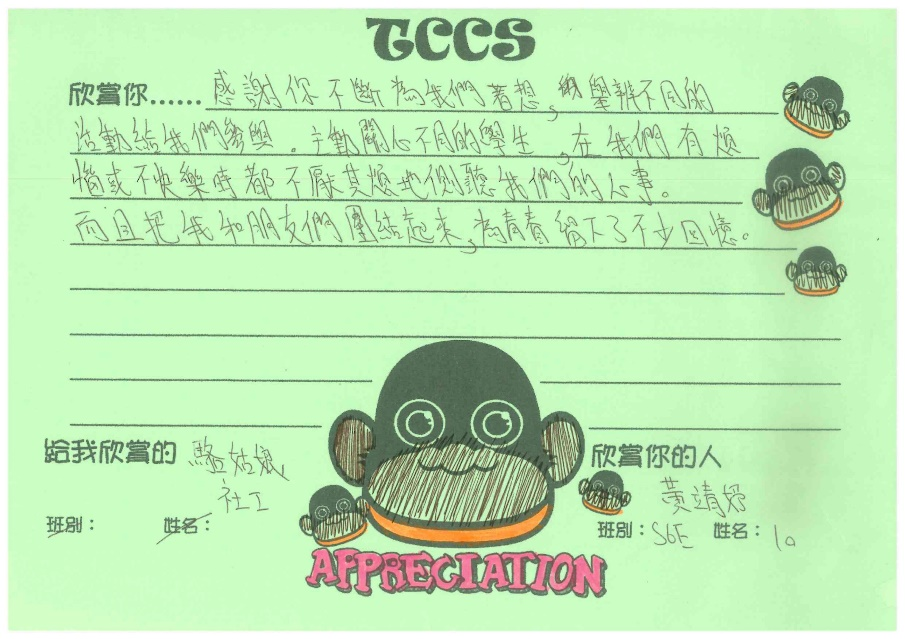 TCCS
欣賞你...... 感謝你不斷為我們著想，舉辦不同的
活動給我們參與。主動關心不同的學生，在我們有煩
惱或不快樂時都不厭其煩地傾聽我們的心事。
而且把我和朋友們團結起來，為青春留下了不少回憶。
給我欣賞的 姑娘
社工
班別： 姓名：
欣賞你的人
黃靖妤
班別：S6E 姓名：10
APPRECIATION